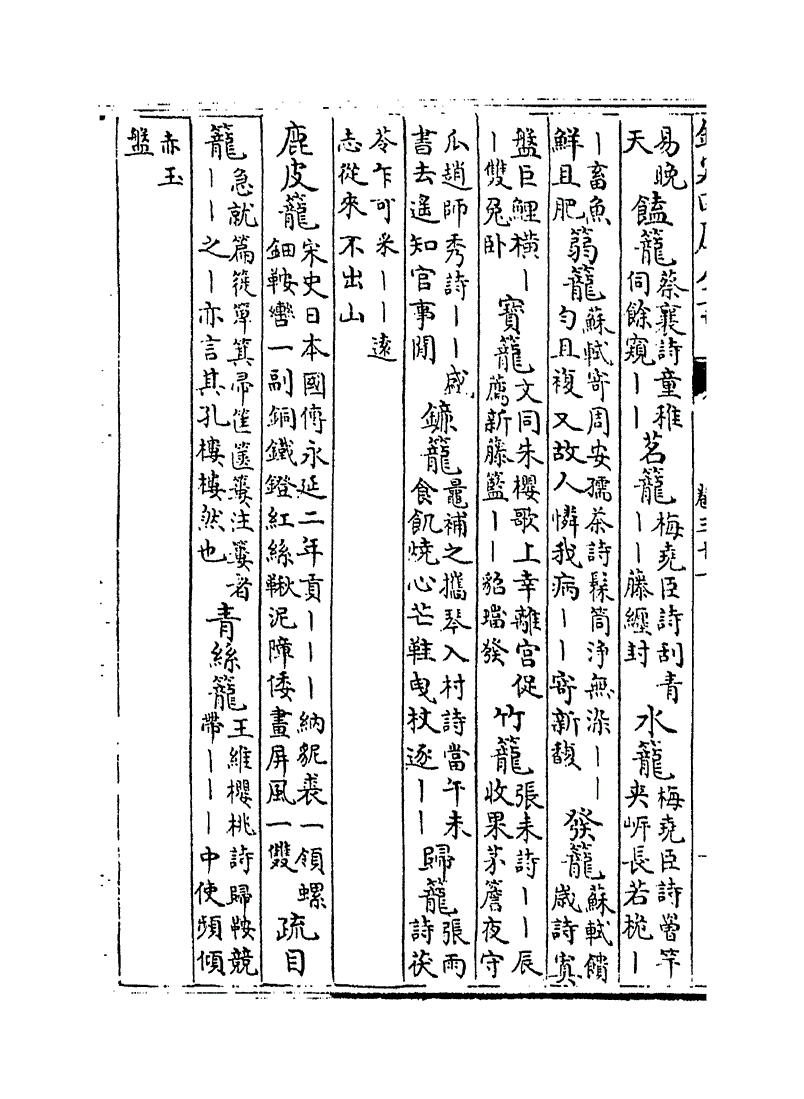 易晚
天
饁籠
蔡襄詩童稚
伺餘窺丨丨
茗籠
梅堯臣詩刮青
丨丨藤纏封
水籠
梅堯臣詩罾竿
夾岍長若桅丨
丨畜魚
鮮且肥
篛籠
蘇軾寄周安孺茶詩髹筒淨無染丨丨
勻且複又故人憐我病丨丨寄新馥
發籠
蘇軾饋
歲詩寘
盤巨鯉橫丨
丨雙兔卧
寳籠
文同朱櫻歌上幸離宮促
薦新藤籃丨丨貂璫發
竹籠
張耒詩丨丨辰
收果茅簷夜守
瓜趙師秀詩丨丨盛
書去遙知官事閒
鐮籠
鼂補之攜琴入村詩當午未
食飢燒心芒鞋曳杖逐丨丨
歸籠
張雨
詩茯
苓乍可采丨丨遠
志從來不出山
鹿皮籠
宋史日本國傳永延二年貢丨丨丨納貂裘一領螺
鈿鞍轡一副銅鐵鐙紅絲鞦泥障倭畫屏風一雙
疏目
籠
急就篇簁箄箕帚筐篋簍注簍者
丨丨之丨亦言其孔樓樓然也
青絲籠
王維櫻桃詩歸鞍競
帶丨丨丨中使頻傾
赤玉
盤